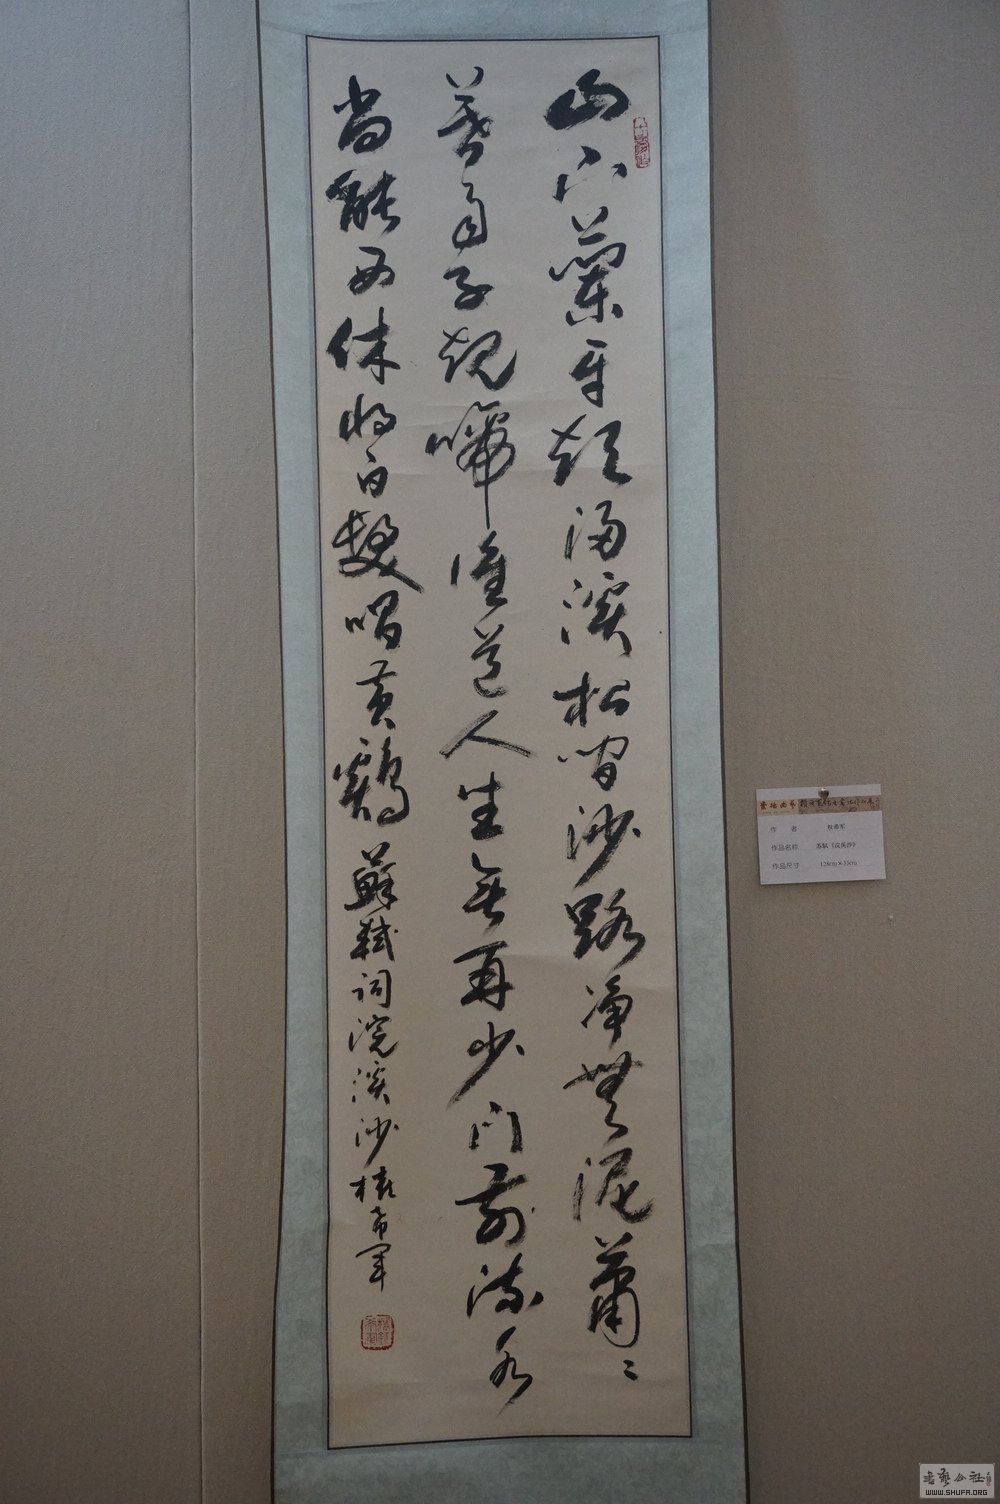 山下蘭芽短浸溪松間沙路净無泥蕭〻
暮雨子規啼誰道人生無再少门前流水
尚能西休将白髮唱黄鷄 蘇軾词浣溪沙 權希军
作 者 权希军
作品名称 苏轼《浣溪沙》
作品尺寸 128cm×33cm
WWW.SHUFA.ORG